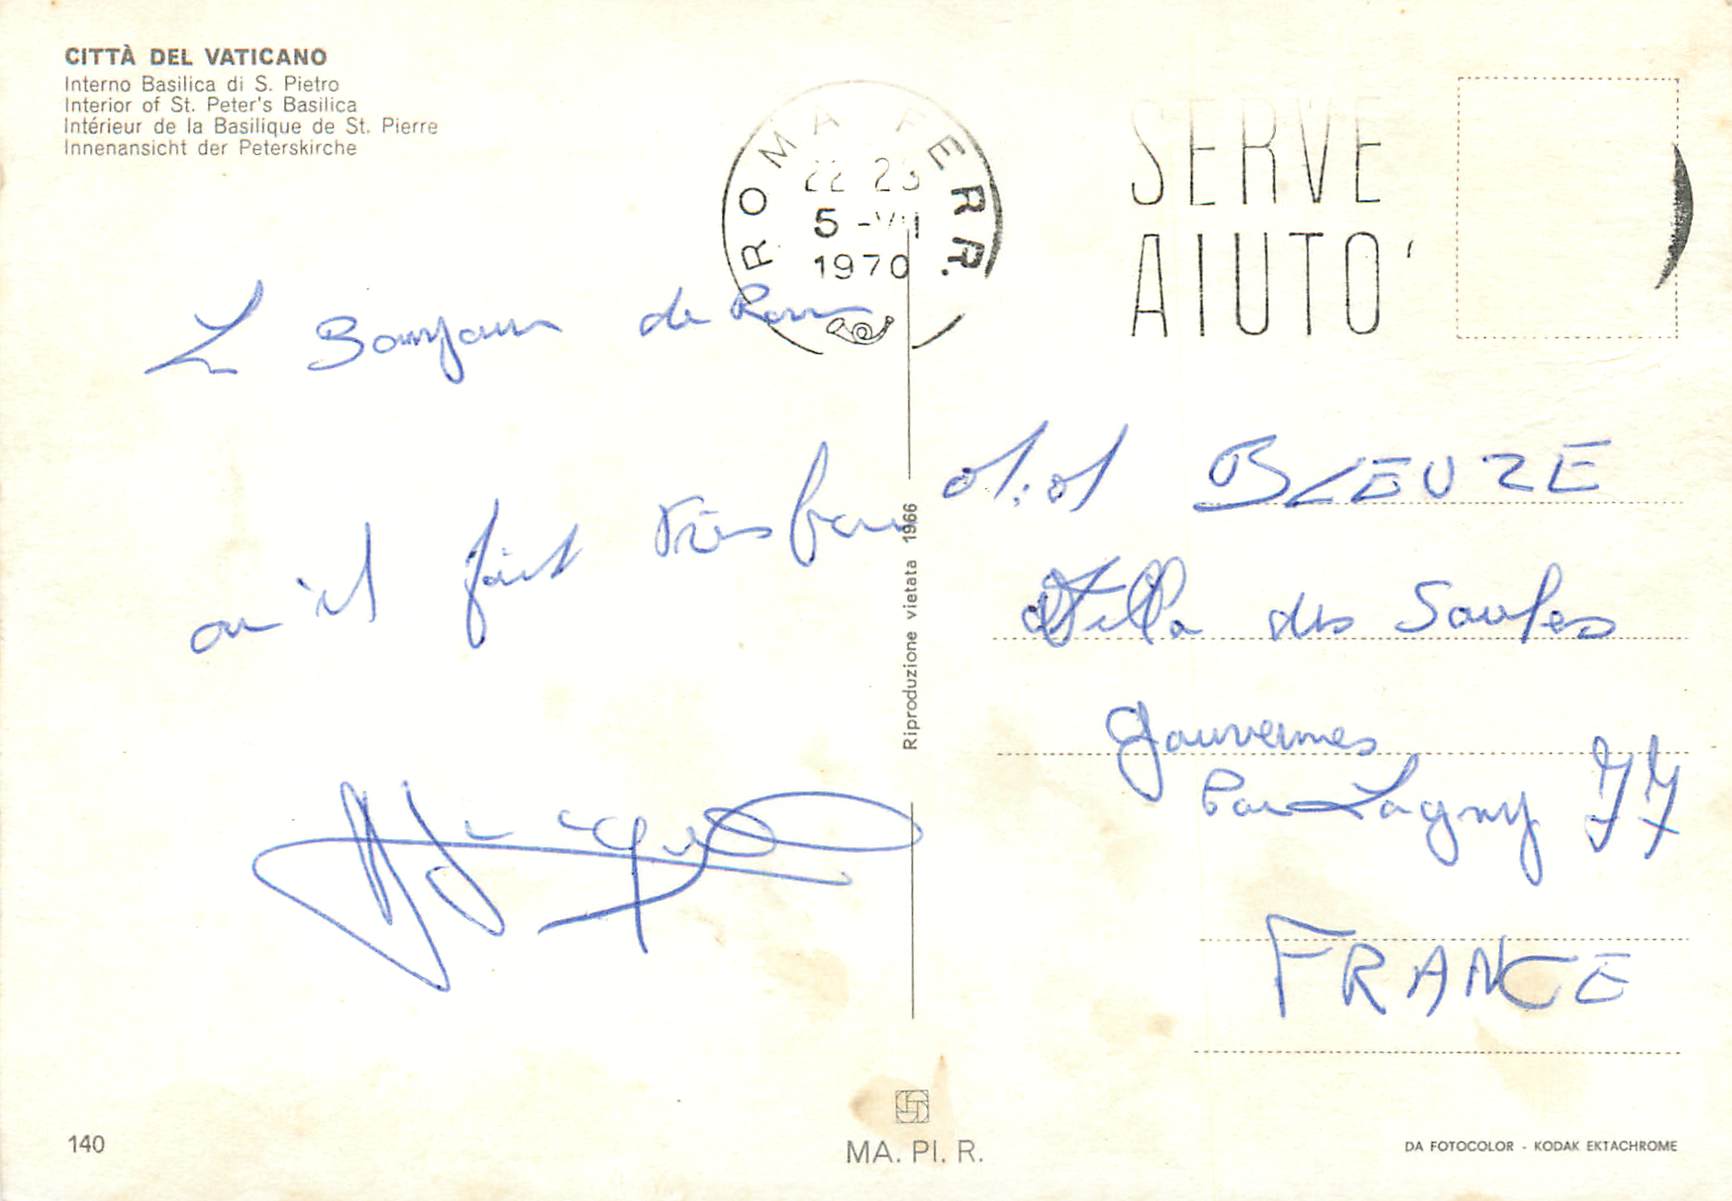 CITTÀ DEL VATICANO
Interno Basilica di S. Pietro
Interior of St. Peter's Basilica
Intérieur de la Basilique de St. Pierre
Innenansicht der Peterskirche
ROMA FERR.
22 23
5 -VII
1970
SERVE
AIUTO
Le Bonjour de Rome
ou il fait très beau
BLEUZE
Villa des Saules
Gouvernes
Par Lagny 77
FRANCE
Riproduzione vietata 1966
140
MA. PI. R.
DA FOTOCOLOR - KODAK EKTACHROME